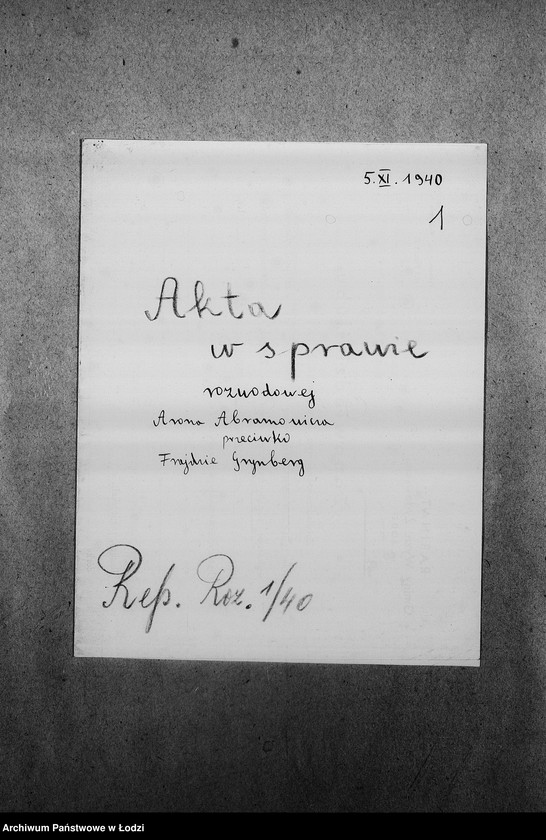 5.XI.1940
1
Akta
w sprawie
rozwodowej
Arona Abramowicza
przeciwko
Frajdzie Grynberg
Rep. Roz. 1/40
Archiwum Państwowe w Łodzi